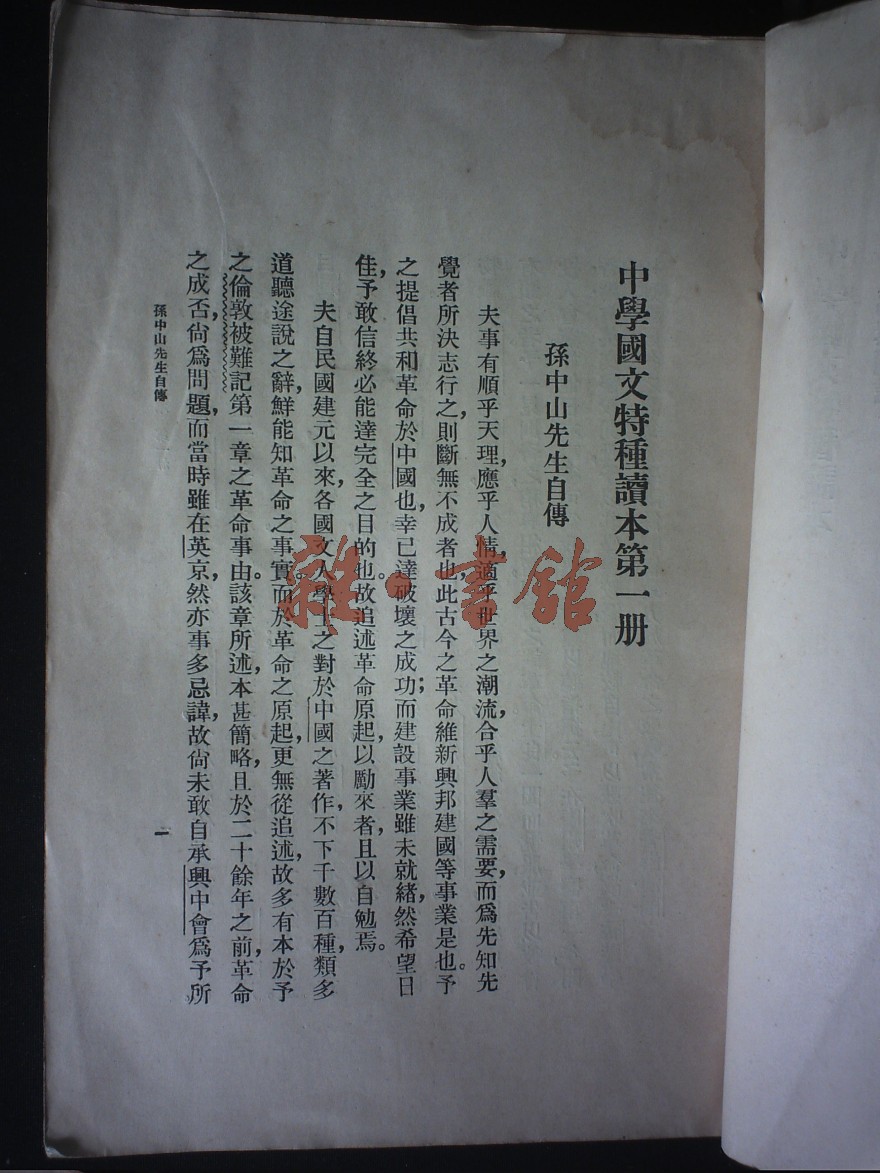 中學國文特種讀本第一册
孫中山先生自傳
夫事有順乎天理，應乎人情，適乎世界之潮流，合乎人羣之需要，而爲先知先
覺者所決志行之，則斷無不成者也，此古今之革命維新興邦建國等事業是也。予
之提倡共和革命於中國也，幸已達破壞之成功；而建設事業雖未就緒，然希望日
佳，予敢信終必能達完全之目的也。故追述革命原起，以勵來者，且以自勉焉。
夫自民國建元以來，各國文人學士之對於中國之著作，不下千數百種，類多
道聽途說之辭，鮮能知革命之事實。而於革命之原起，更無從追述，故多有本於予
之倫敦被難記第一章之革命事由。該章所述，本甚簡略，且於二十餘年之前，革命
之成否，尙爲問題，而當時雖在英京，然亦事多忌諱，故尙未敢自承興中會爲予所
孫中山先生自傳
一
雜·書館